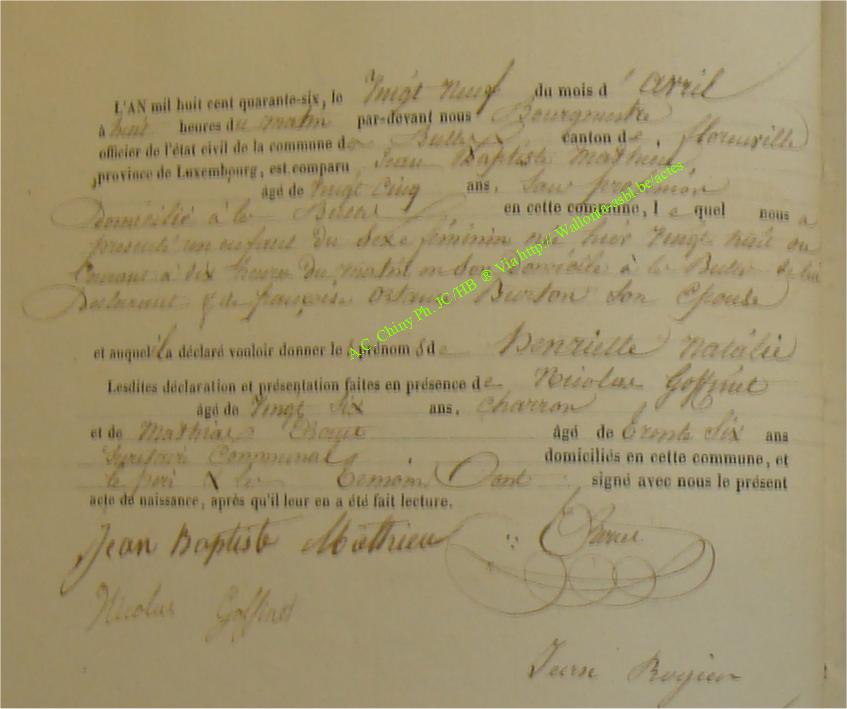 L'AN mil huit cent quarante-six, le Vingt neuf du mois d'avril
à huit heures du matin par-devant nous Bourgmestre
officier de l'état civil de la commune de Bulles canton de florenville
province de Luxembourg, est comparu Jean Baptiste Mathieu
âgé de Vingt Cinq ans,
Domicilié à la Bulles en cette commune, le quel nous a
presenté un enfant du Sexe féminin né hier Vingt huit du
Courant à dix heures du matin en Son domicile à la Bulles de lui
Declarant & de françoise Burton Son Epouse
et auquel il a déclaré vouloir donner les prénoms de Henriette Natalie
Lesdites déclaration et présentation faites en présence de Nicolas Goffinet
âgé de Vingt Six ans, Charron
et de Mathias âgé de trente Six ans
Secretaire Communal domiciliés en cette commune, et
le peri & les temoins Dont signé avec nous le présent
acte de naissance, après qu'il leur en a été fait lecture.
Jean Baptiste Mathieu
Nicolas Goffinet
A.C. Chiny Ph. JC/HB ® Via https Wallonia-asbl.be/actes